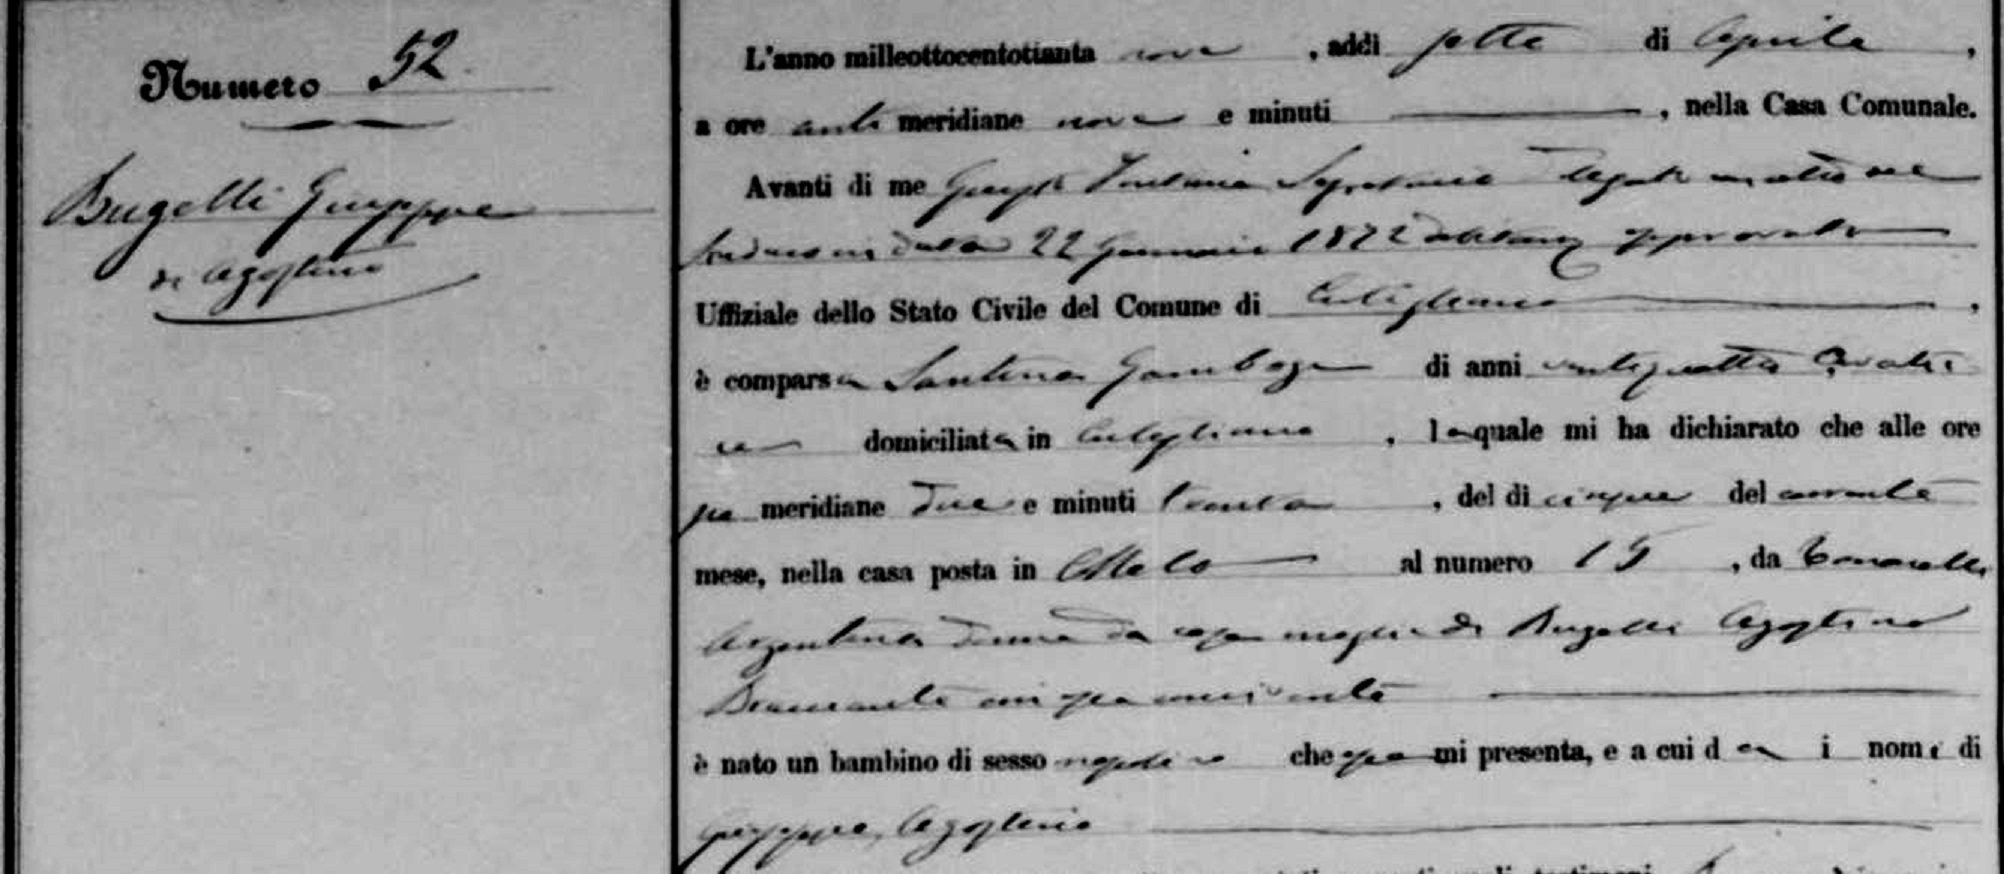 Numero 52
Bugelli Giuseppe
di Agostino
L'anno milleottocentottanta nove, addì sette di Aprile,
a ore anti meridiane nove e minuti ———, nella Casa Comunale.
Avanti di me Giuseppe Segretario Delegato con atto del
Sindaco in data 22 Gennaio 1872 debitamente approvato
Uffiziale dello Stato Civile del Comune di Cutigliano,
è comparsa Santina di anni ventiquattro
domiciliata in Cutigliano, la quale mi ha dichiarato che alle ore
po meridiane due e minuti trenta, del dì cinque del corrente
mese, nella casa posta in Melo al numero 15, da
Argentina donna da casa moglie di Bugelli Agostino
Bracciante con esso convivente
è nato un bambino di sesso mascolino che essa mi presenta, e a cui dà i nomi di
Giuseppe, Agostino